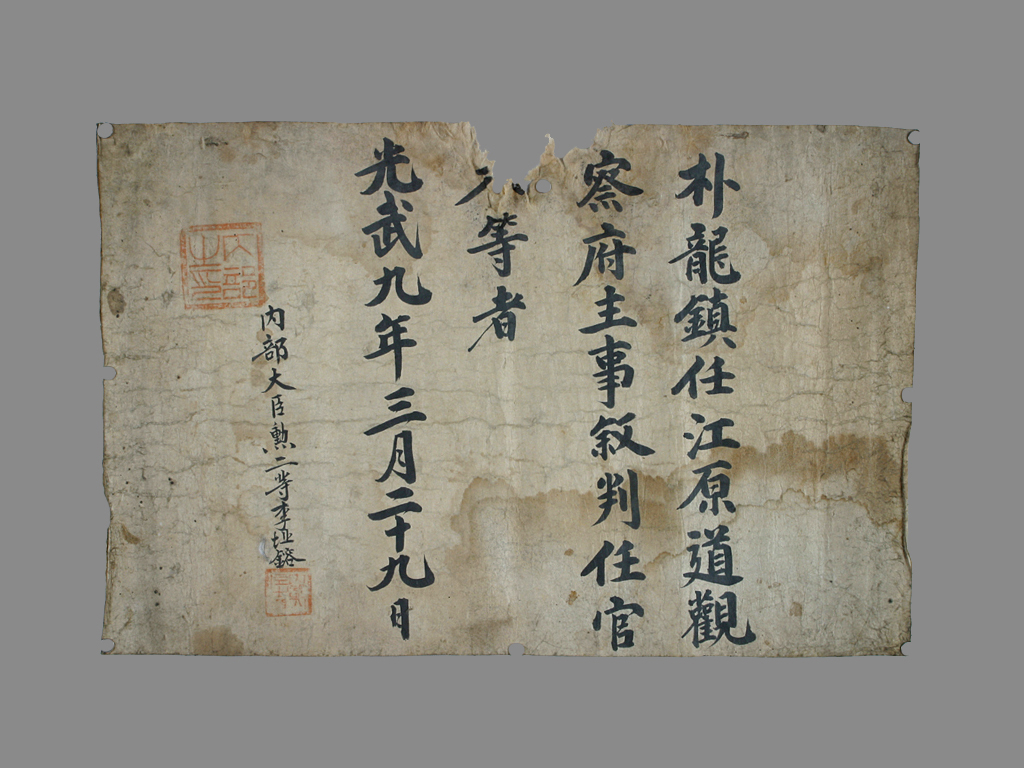 朴龍鎮任江原道觀
察府主事敘判任官
等者
光武九年三月二十九日
內部大臣勳二等李址鎔
內部之印